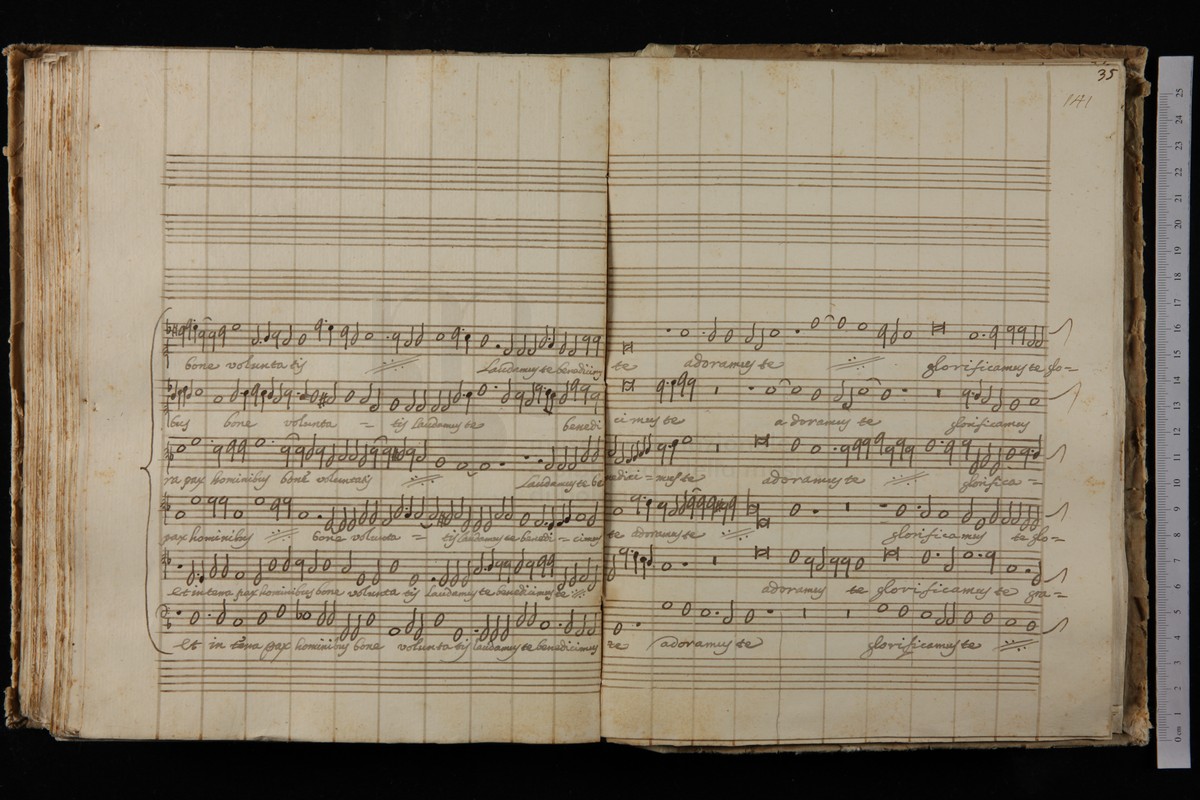 35
141
bone voluntatis laudamus te benedicimus te adoramus te glorificamus te glo=
bus bone volunta = tis laudamus te benedi cimus te adoramus te glorificamus
ra pax hominibus bone voluntatis laudamus te benedici = mus te adoramus te glorifica =
pax hominibus bone volunta = tis laudamus te benedi = cimus te adoramus te glorificamus te glo=
et in terra pax hominibus bone volunta tis laudamus te benedicimus te adoramus te glorificamus te gra=
et in terra pax hominibus bone voluntatis laudamus te benedicimus te adoramus te glorificamus te
0 cm 1 2 3 4 5 6 7 8 9 10 11 12 13 14 15 16 17 18 19 20 21 22 23 24 25